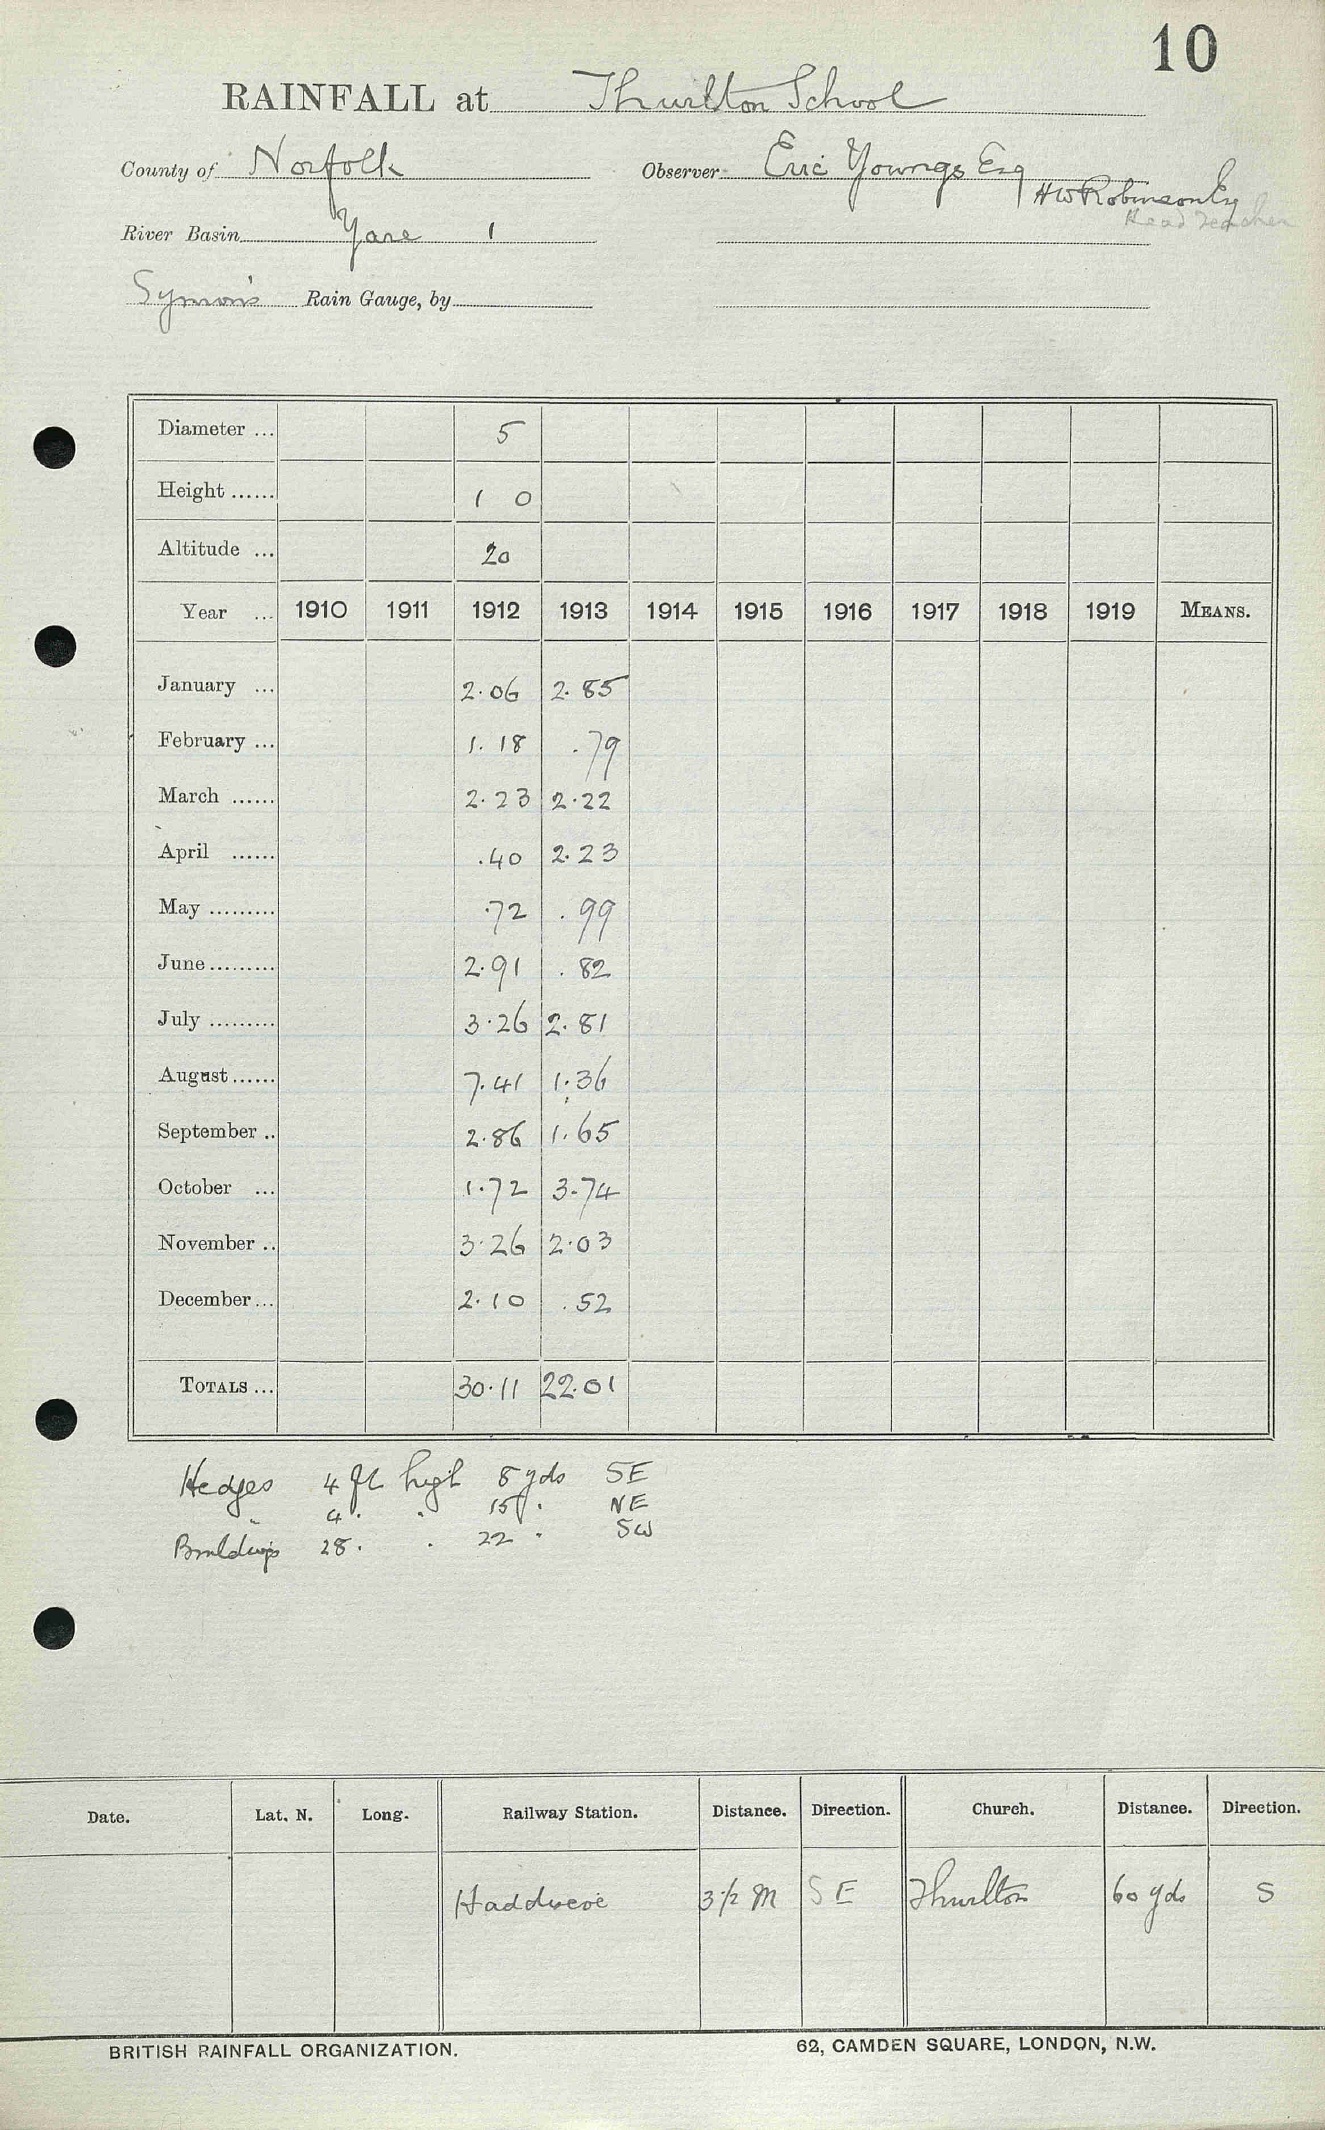 10
RAINFALL at Thurlton School
County of Norfolk Observer Eric Youngs Esq
H W Robinson Esq
Head Teacher
River Basin Yare 1
Symon's Rain Gauge, by
Diameter ... 5
Height ...... 1 0
Altitude ... 20
Year ... 1910 1911 1912 1913 1914 1915 1916 1917 1918 1919 MEANS.
January ... 2.06 2.85
February ... 1.18 .79
March ...... 2.23 2.22
April ...... .40 2.23
May ......... .72 .99
June ......... 2.91 .82
July ......... 3.26 2.81
August ...... 7.41 1.36
September .. 2.86 1.65
October ... 1.72 3.74
November .. 3.26 2.03
December ... 2.10 .52
TOTALS ... 30.11 22.01
Hedges 4 ft high 8 yds SE
" 4 . . 15 . NE
Buildings 28 . . 22 . SW
Date. Lat. N. Long. Railway Station. Distance. Direction. Church. Distance. Direction.
Haddiscoe 3½ M SE Thurlton 60 yds S
BRITISH RAINFALL ORGANIZATION. 62, CAMDEN SQUARE, LONDON, N.W.